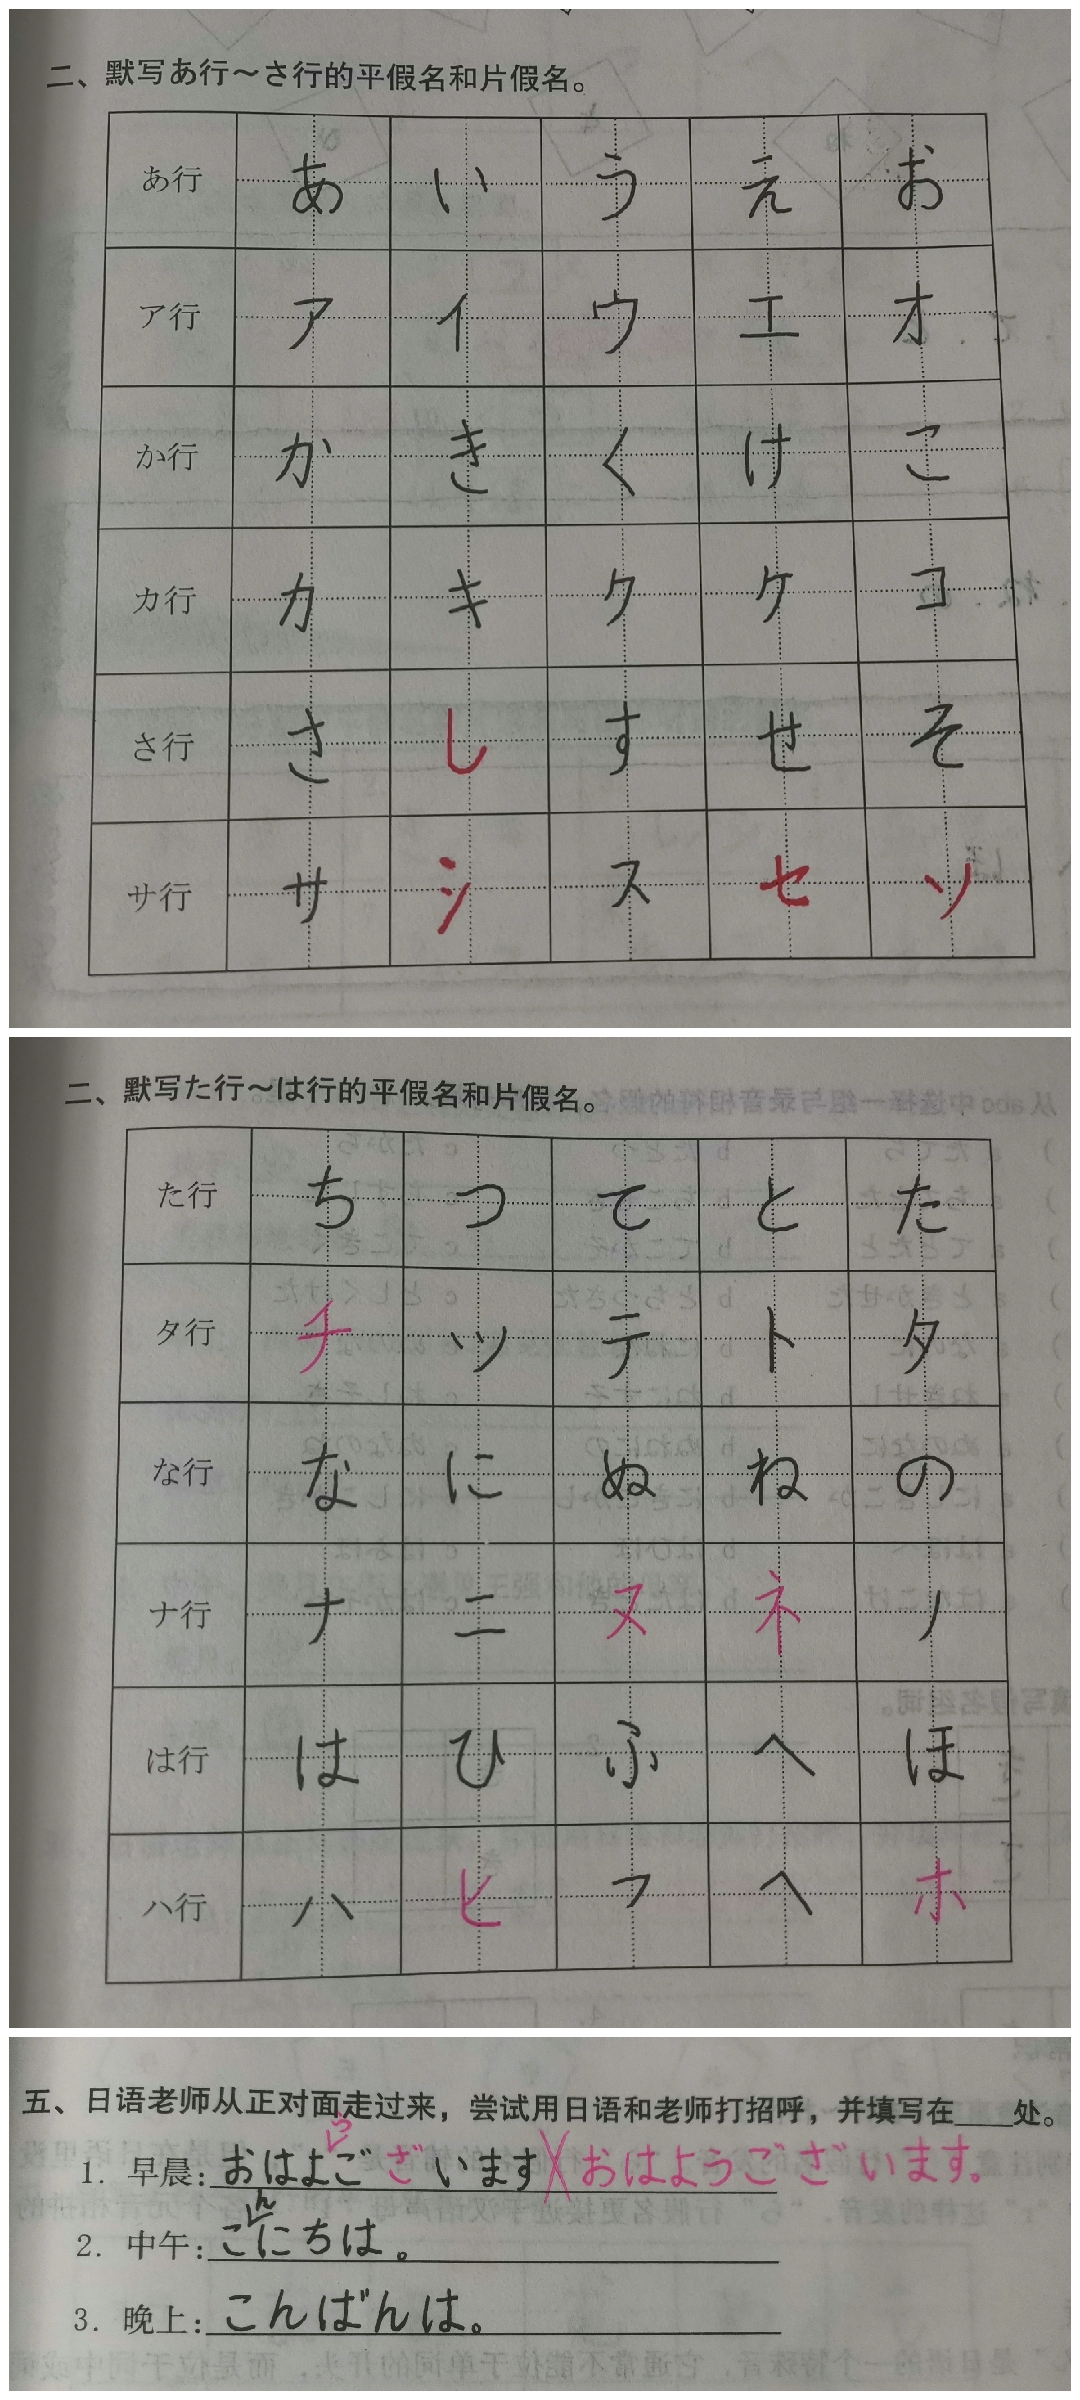 二、默写あ行～さ行的平假名和片假名。
あ行 あ い う え お
ア行 ア イ ウ エ オ
か行 か き く け こ
カ行 カ キ ク ケ コ
さ行 さ し す せ そ
サ行 サ シ ス セ ソ
二、默写た行～は行的平假名和片假名。
た行 ち つ て と た
タ行 チ ツ テ ト タ
な行 な に ぬ ね の
ナ行 ナ ニ ヌ ネ ノ
は行 は ひ ふ へ ほ
ハ行 ハ ヒ フ ヘ ホ
五、日语老师从正对面走过来，尝试用日语和老师打招呼，并填写在____处。
1. 早晨：おはようございます おはようございます。
2. 中午：こんにちは。
3. 晚上：こんばんは。